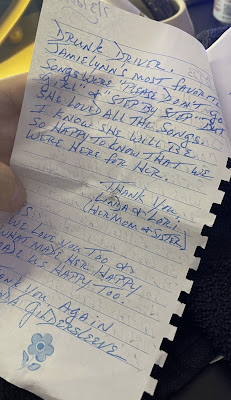 DRUNK DRIVER.
JAMIELYNN'S MOST FAVORITE
SONGS WERE "PLEASE DON'T GO
GIRL" & "STEP BY STEP" BUT
SHE LOVED ALL THE SONGS.
I KNOW SHE WILL BE
SO HAPPY TO KNOW THAT WE
WERE HERE FOR HER.
THANK YOU,
LINDA & LORI
(HER MOM & SISTER)
WE LOVE YOU TOO &
WHAT MADE HER HAPPY
MADE US HAPPY TOO.
THANK YOU AGAIN
LINDA